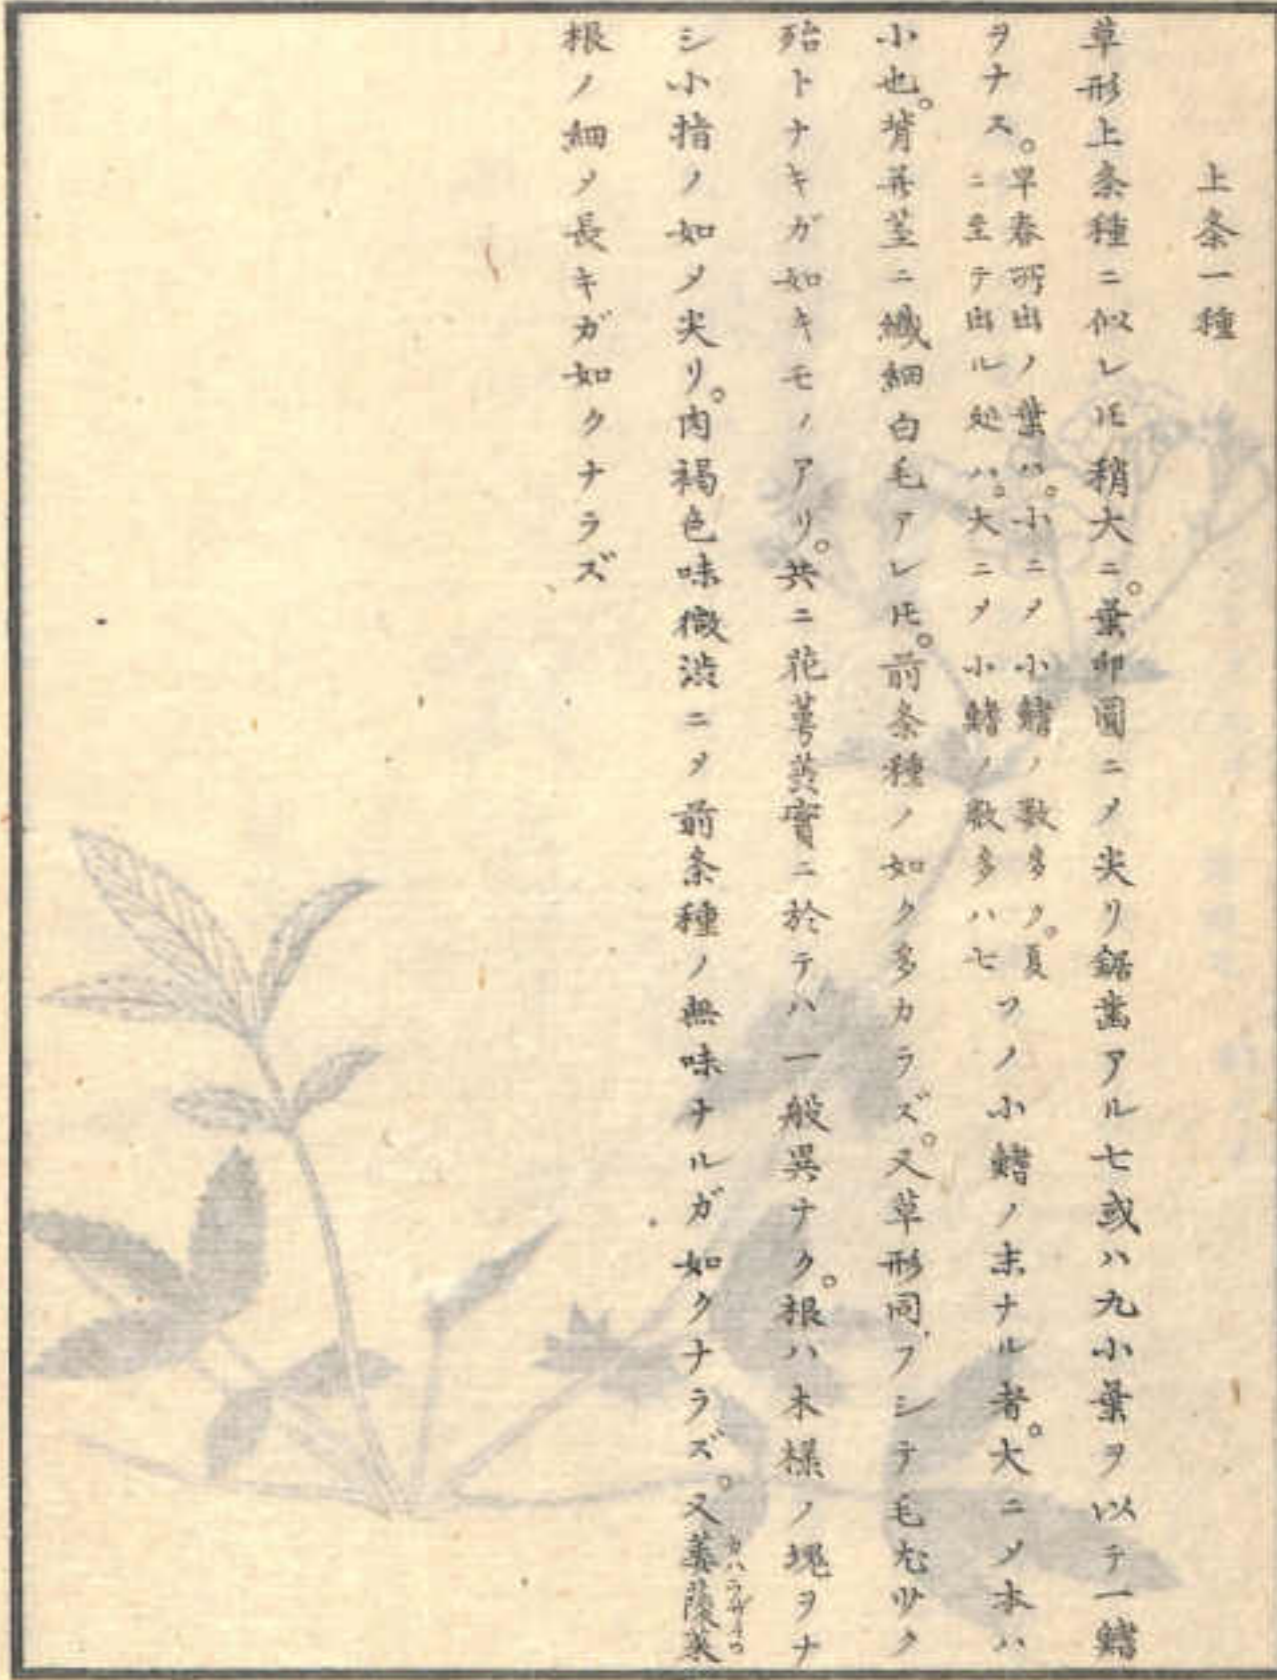 上条一種
草形上条種ニ似レ𪜈稍大ニ。葉卵圓ニ〆尖リ鋸歯アル七或ハ九小葉ヲ以テ一鰭
ヲナス。早春所出ノ葉ハ。小ニ〆小鰭ノ数多ク。夏
ニ至テ出ル処ハ。大ニ〆小鰭ノ数多ハ七
フノ小鰭ノ末ナル者。大ニ〆本ハ
小也。背并茎ニ纎細白毛アレ𪜈。前条種ノ如ク多カラズ。又草形同フシテ毛尤少ク
殆トナキガ如キモノアリ。共ニ花萼蕊實ニ於テハ一般異ナク。根ハ木様ノ塊ヲナ
シ小指ノ如〆尖リ。肉褐色味微渋ニ〆前条種ノ無味ナルガ如クナラズ。又萎陵菜
カハラサイコ
根ノ細〆長キガ如クナラズ